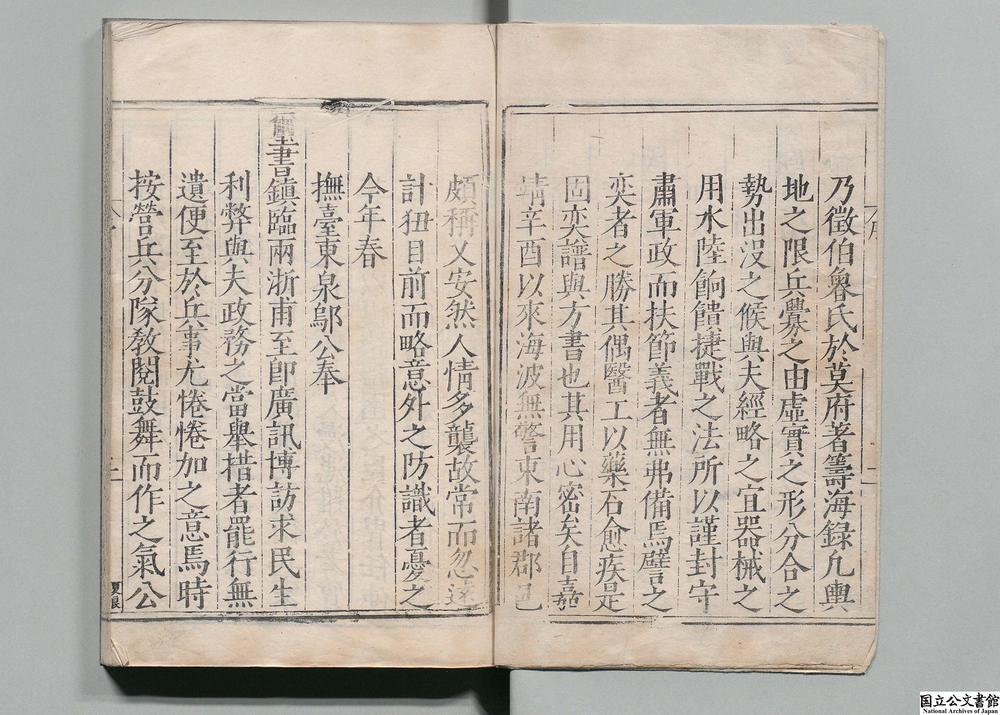 乃徵伯魯氏於莫府著籌海錄凡輿
地之限兵釁之由虛實之形分合之
勢出沒之候與夫經略之宜器械之
用水陸餉饋捷戰之法所以謹封守
肅軍政而扶節義者無弗備焉譬之
奕者之勝其偶醫工以藥石愈疾是
固奕譜與方書也其用心密矣自嘉
靖辛酉以來海波無警東南諸郡邑
頗稱乂安然人情多襲故常而忽遠
計狃目前而略意外之防識者憂之
今年春
撫臺東泉鄔公奉
璽書鎮臨兩浙甫至即廣訊博訪求民生
利弊與夫政務之當舉措者罷行無
遺便至於兵事尤惓惓加之意焉時
按營兵分隊教閱鼓舞而作之氣公
國立公文書館
National Archives of Japan